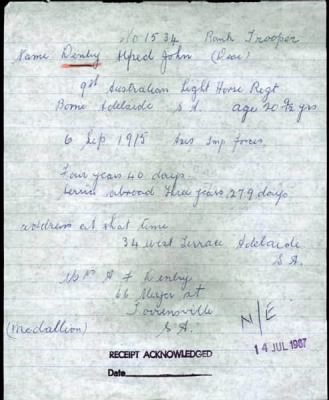 No 1534 Rank Trooper
Name Denby Alfred John (Dec)
9th Australian Light Horse Regt
Born Adelaide S A. age 20 4/12 yrs
6 Sep 1915 Aus Imp Forces
Four years 40 days.
Service abroad three years, 279 days
address at that time
34 West Terrace Adelaide
S A.
Mrs A F Denby
66 Meyer st
Torrensville
S A.
(Medallion)
N/E
14 JUL 1967
RECEIPT ACKNOWLEDGED
Date